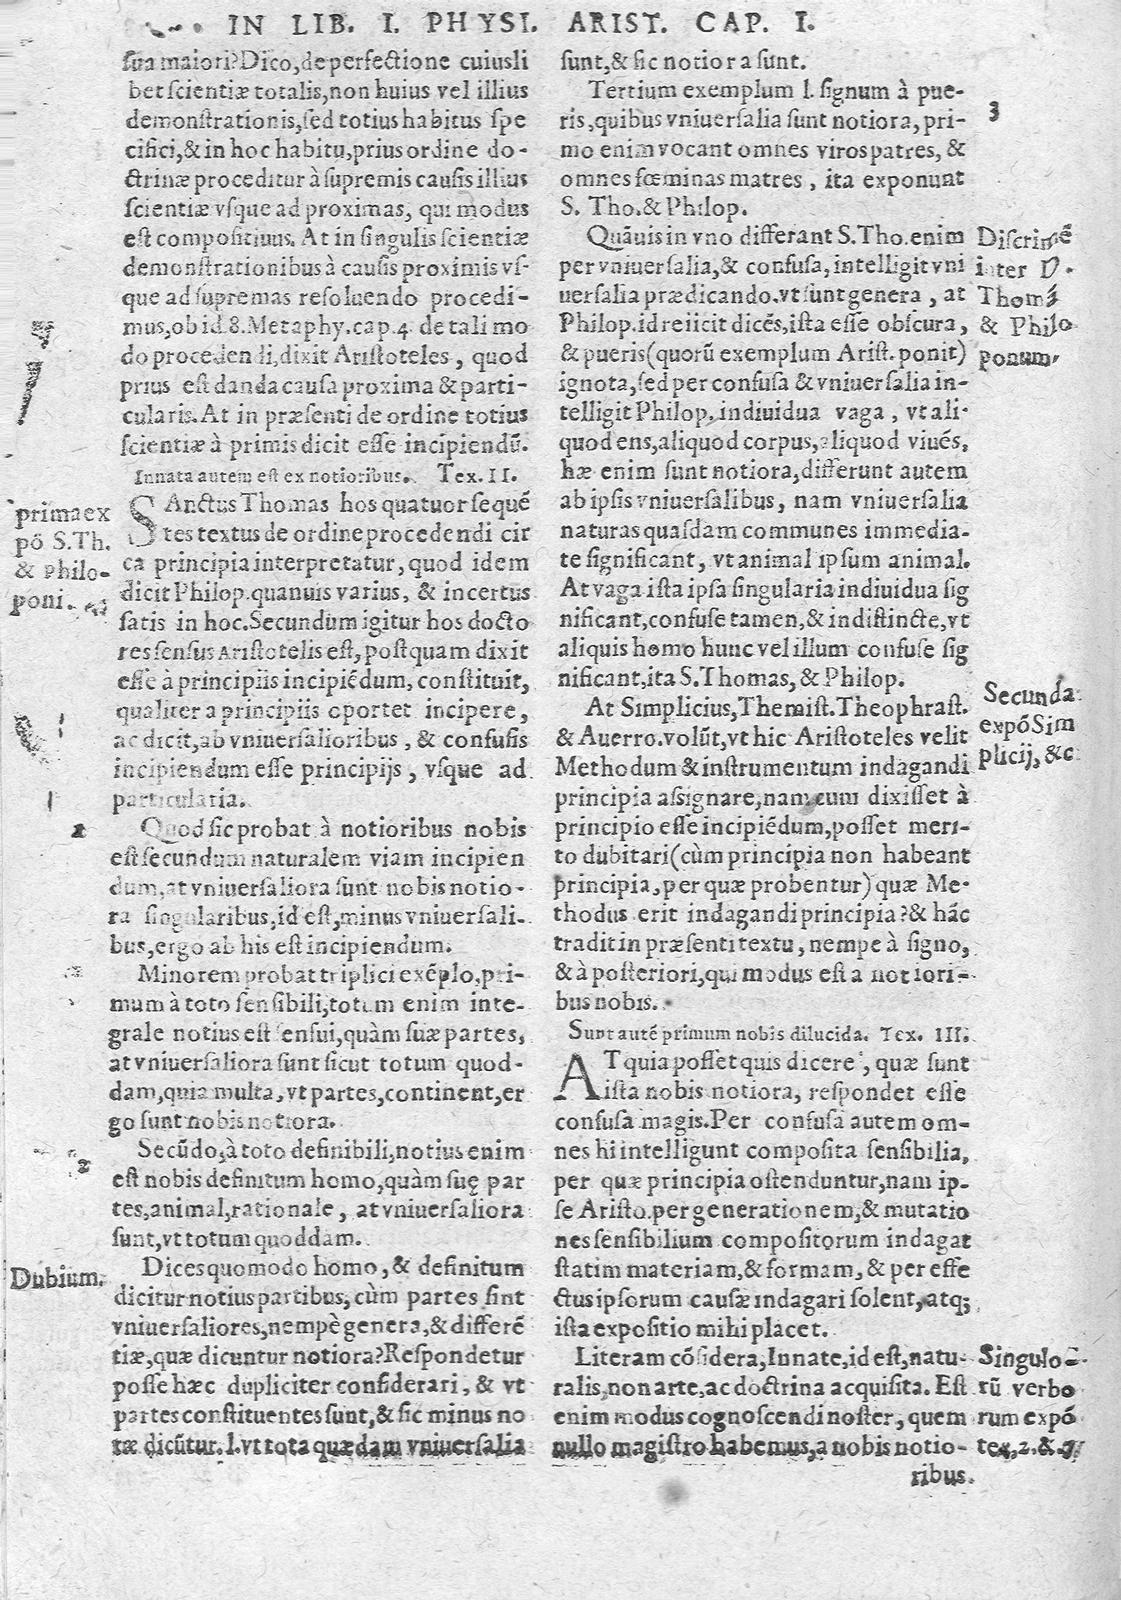 IN LIB. I. PHYSI. ARIST. CAP. I.
sua maiori? Dico, de perfectione cuiusli
bet scientiæ totalis, non huius vel illius
demonstrationis, sed totius habitus spe
cifici, & in hoc habitu, prius ordine do-
ctrinæ proceditur à supremis causis illius
scientiæ vsque ad proximas, qui modus
est compositiuus. At in singulis scientiæ
demonstrationibus à causis proximis vs-
que ad supremas resoluendo procedi-
mus, ob id 8. Metaphy. cap. 4 de tali mo
do procedendi, dixit Aristoteles, quod
prius est danda causa proxima & parti-
cularis. At in præsenti de ordine totius
scientiæ à primis dicit esse incipiendũ.
Innata autem est ex notioribus. Tex. II.
prima ex
põ S. Th.
& Philo-
poni.
SAnctus Thomas hos quatuor sequẽ
tes textus de ordine procedendi cir
ca principia interpretatur, quod idem
dicit Philop. quanuis varius, & incertus
satis in hoc. Secundum igitur hos docto
res sensus Aristotelis est, postquam dixit
esse à principiis incipiẽdum, constituit,
qualiter a principiis oportet incipere,
ac dicit, ab vniuersalioribus, & confusis
incipiendum esse principijs, vsque ad
particularia.
Quod sic probat à notioribus nobis
est secundum naturalem viam incipien
dum, at vniuersaliora sunt nobis notio-
ra singularibus, id est, minus vniuersali-
bus, ergo ab his est incipiendum.
Minorem probat triplici exẽplo, pri-
mum à toto sensibili, totum enim inte-
grale notius est sensui, quàm suæ partes,
at vniuersaliora sunt sicut totum quod-
dam, quia multa, vt partes, continent, er
go sunt nobis notiora.
2
Secũdo, à toto definibili, notius enim
est nobis definitum homo, quàm suę par
tes, animal, rationale, at vniuersaliora
sunt, vt totum quoddam.
Dubium.
Dices quomodo homo, & definitum
dicitur notius partibus, cùm partes sint
vniuersaliores, nempè genera, & differẽ
tiæ, quæ dicuntur notiora? Respondetur
posse hæc dupliciter considerari, & vt
partes constituentes sunt, & sic minus no
tæ dicũtur. l. vt tota quædam vniuersalia
sunt, & sic notiora sunt.
Tertium exemplum l. signum à pue-
3
ris, quibus vniuersalia sunt notiora, pri-
mo enim vocant omnes viros patres, &
omnes fœminas matres, ita exponunt
S. Tho. & Philop.
Discrimẽ
inter D.
Thomã
& Philo
ponum.
Quãuis in vno differant S. Tho. enim
per vniuersalia, & confusa, intelligit vni
uersalia prædicando. vt sunt genera, at
Philop. id reiicit dicẽs, ista esse obscura,
& pueris (quorũ exemplum Arist. ponit)
ignota, sed per confusa & vniuersalia in-
telligit Philop. indiuidua vaga, vt ali-
quod ens, aliquod corpus, aliquod viuẽs,
hæ enim sunt notiora, differunt autem
ab ipsis vniuersalibus, nam vniuersalia
naturas quasdam communes immedia-
te significant, vt animal ipsum animal.
At vaga ista ipsa singularia indiuidua sig
nificant, confuse tamen, & indistincte, vt
aliquis homo hunc vel illum confuse sig
nificant, ita S. Thomas, & Philop.
Secunda
expõ Sim
plicij, &c
At Simplicius, Themist. Theophrast.
& Auerro. volũt, vt hic Aristoteles velit
Methodum & instrumentum indagandi
principia assignare, nam cum dixisset à
principio esse incipiẽdum, posset meri-
to dubitari (cùm principia non habeant
principia, per quæ probentur) quæ Me-
thodus erit indagandi principia? & hãc
tradit in præsenti textu, nempe à signo,
& à posteriori, qui modus est a notiori-
bus nobis.
Sunt autẽ primum nobis dilucida. Tex. III.
AT quia posset quis dicere, quæ sunt
ista nobis notiora, respondet esse
confusa magis. Per confusa autem om-
nes hi intelligunt composita sensibilia,
per quæ principia ostenduntur, nam ip-
se Aristo. per generationem, & mutatio
nes sensibilium compositorum indagat
statim materiam, & formam, & per effe
ctus ipsorum causæ indagari solent, atq;
ista expositio mihi placet.
Singulo-
rũ verbo
rum expõ
tex, 2. & 3
Literam cõsidera, Innate, id est, natu-
ralis, non arte, ac doctrina acquisita. Est
enim modus cognoscendi noster, quem
nullo magistro habemus, a nobis notio-
ribus.